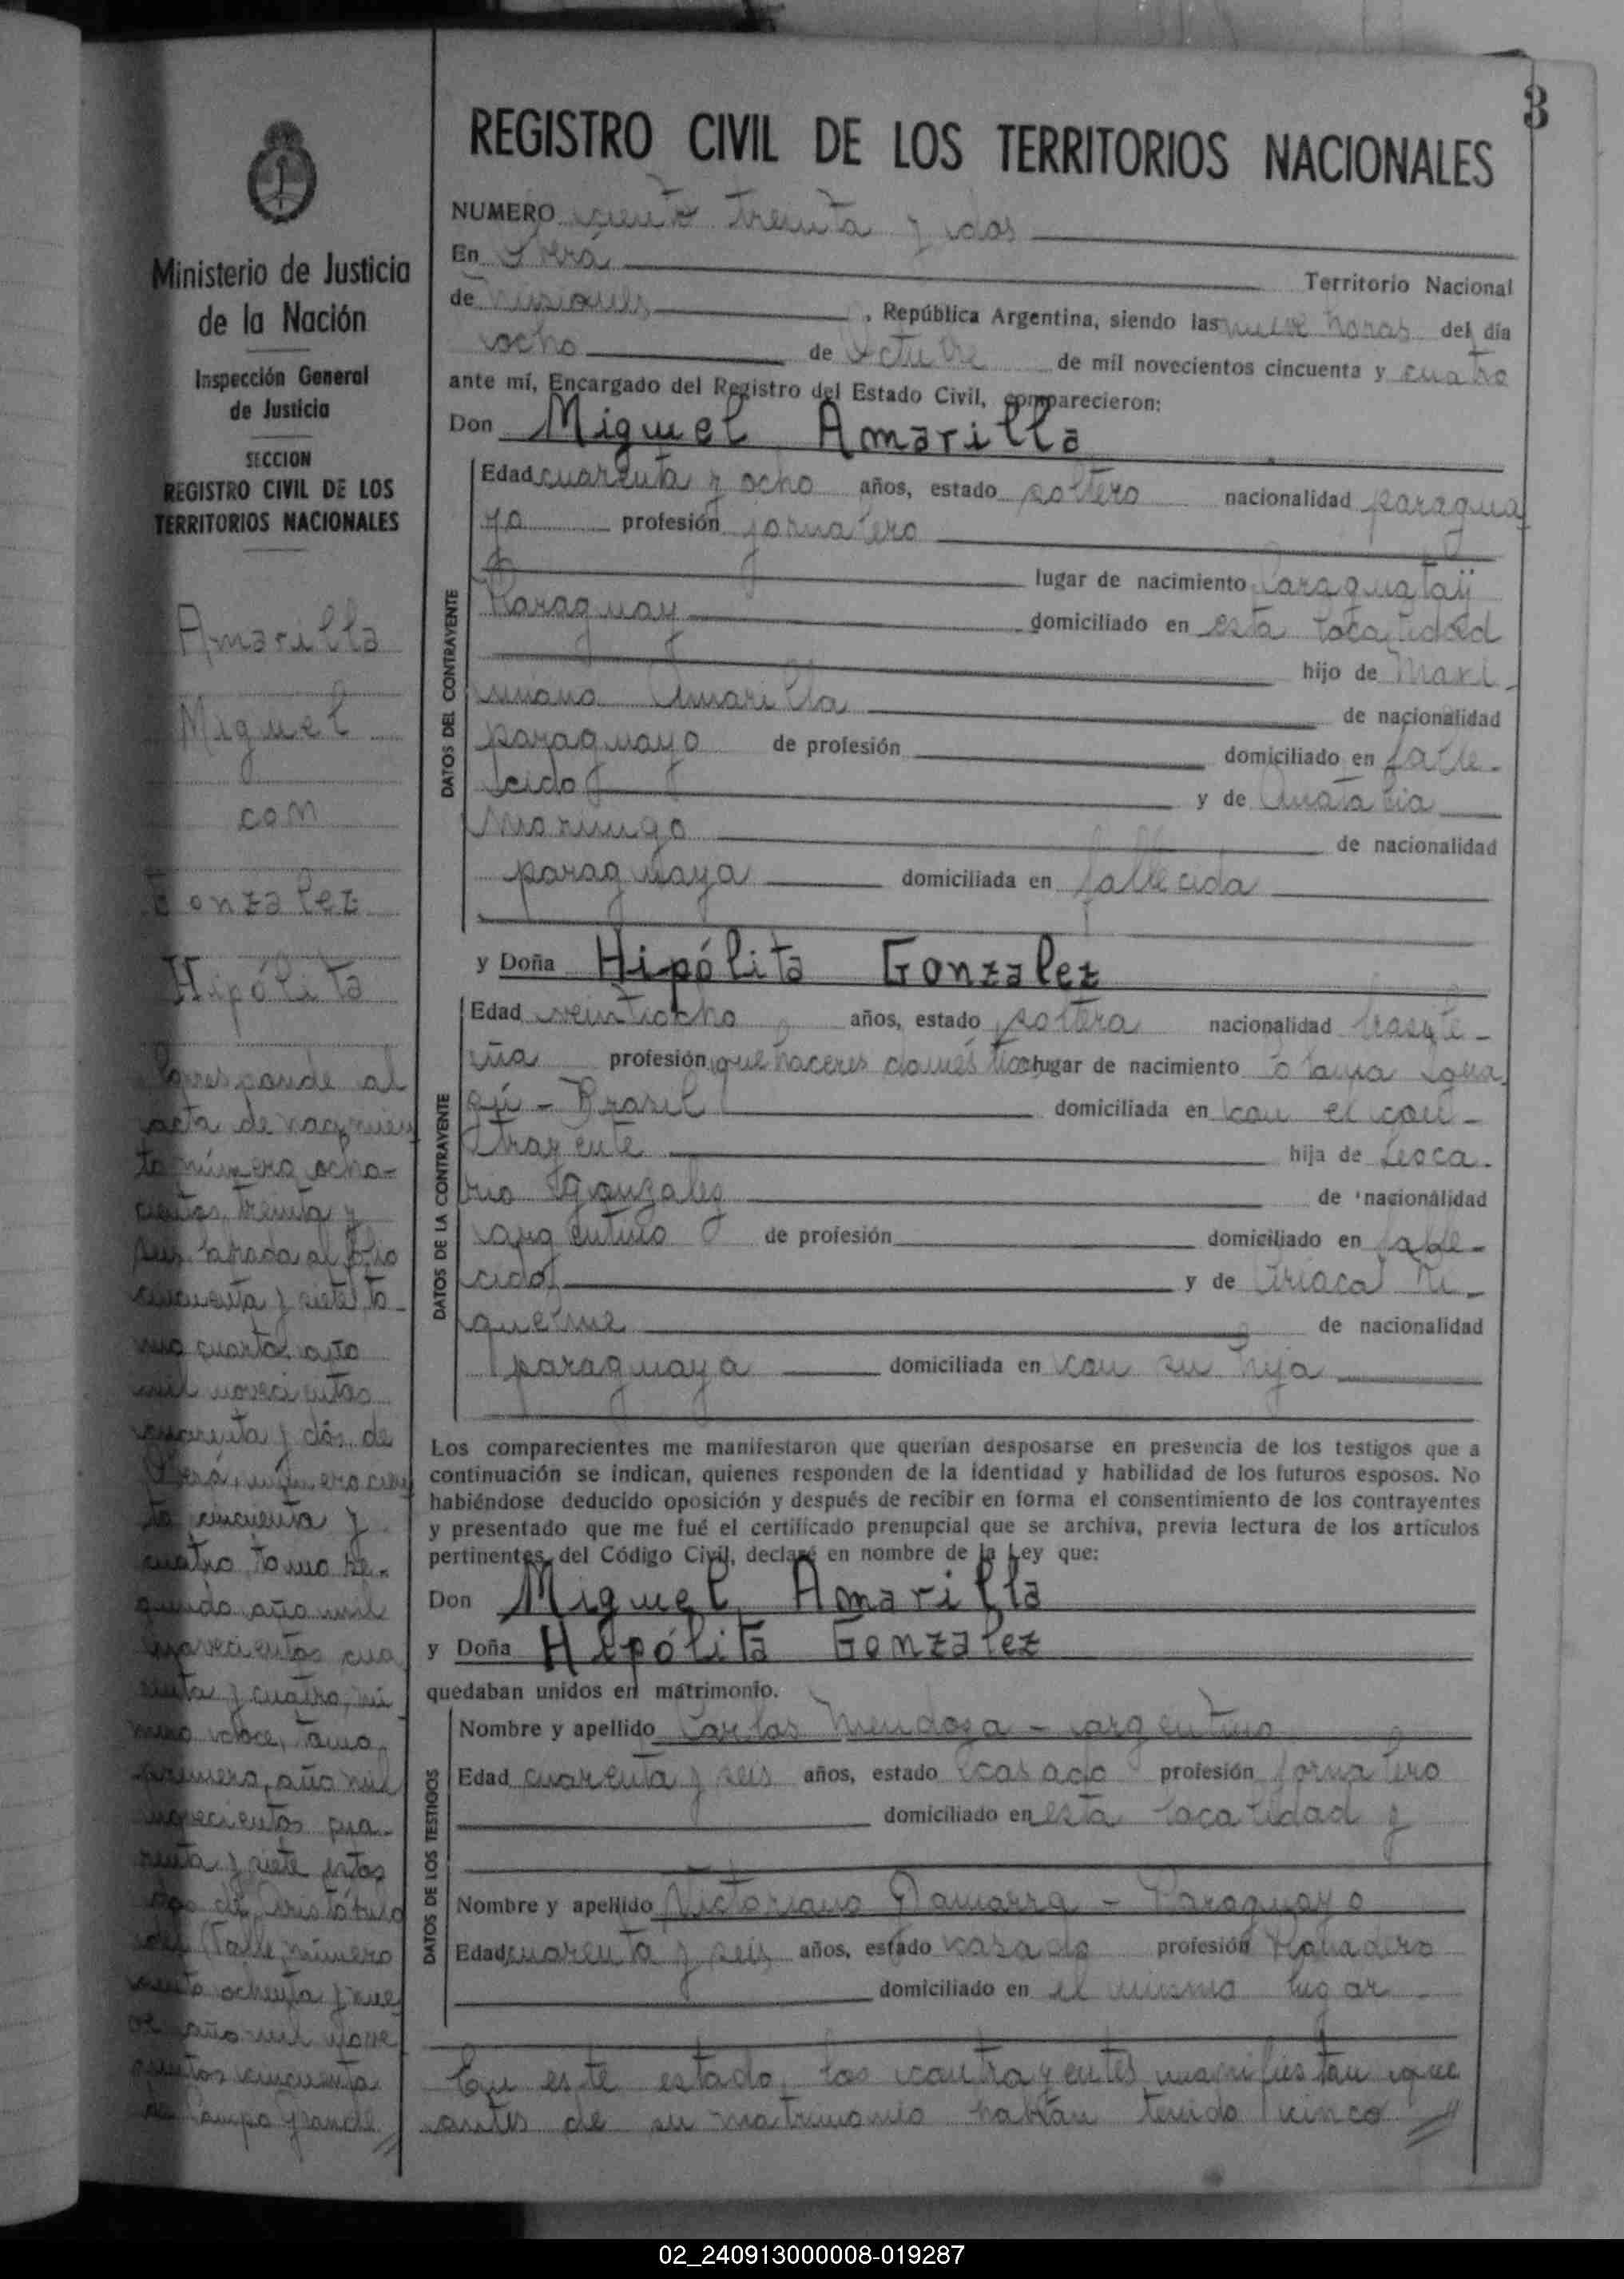 3
REGISTRO CIVIL DE LOS TERRITORIOS NACIONALES
Ministerio de Justicia
de la Nación
Inspección General
de Justicia
SECCION
REGISTRO CIVIL DE LOS
TERRITORIOS NACIONALES
Amarilla
Miguel
con
Gonzalez
Hipólita
acta de
to número ocho-
cientos treinta y
al folio
cincuenta y siete to-
mo cuarto año
mil novecientos
cuarenta y dós de
cincuenta y
cuatro tomo se-
gundo año mil
novecientos cua
renta y cuatro, nú
mero doce, tomo
primero, año mil
novecientos cua-
renta y siete
de Aristóbulo
del Valle, número
ciento ochenta y nue
ve año mil nove
cientos cincuenta
de Campo Grande
NUMERO ciento treinta y dos
En Oberá Territorio Nacional
de Misiones, República Argentina, siendo las nueve horas del día
ocho de Octubre de mil novecientos cincuenta y cuatro
ante mí, Encargado del Registro del Estado Civil, comparecieron:
Don Miguel Amarilla
DATOS DEL CONTRAYENTE
Edad cuarenta y ocho años, estado soltero nacionalidad paragua
yo profesión jornalero
lugar de nacimiento Caraguatay
Paraguay domiciliado en esta localidad
hijo de Maxi-
miano Amarilla de nacionalidad
paraguayo de profesión domiciliado en falle-
cido y de Anatalia
Moringo de nacionalidad
paraguaya domiciliada en fallecida
y Doña Hipólita Gonzalez
DATOS DE LA CONTRAYENTE
Edad veintiocho años, estado soltera nacionalidad brasile-
ña profesión quehaceres domésticos lugar de nacimiento
- Brasil domiciliada en con el con-
trayente hija de Leoca-
Gonzalez de nacionalidad
argentino de profesión domiciliado en falle-
cido y de Ciriaca Ri-
quelme de nacionalidad
paraguaya domiciliada en con su hija
Los comparecientes me manifestaron que querían desposarse en presencia de los testigos que a
continuación se indican, quienes responden de la identidad y habilidad de los futuros esposos. No
habiéndose deducido oposición y después de recibir en forma el consentimiento de los contrayentes
y presentado que me fué el certificado prenupcial que se archiva, previa lectura de los artículos
pertinentes del Código Civil, declaré en nombre de la Ley que:
Don Miguel Amarilla
y Doña Hipólita Gonzalez
quedaban unidos en matrimonio.
DATOS DE LOS TESTIGOS
Nombre y apellido Carlos Mendoza - argentino
Edad cuarenta y seis años, estado casado profesión jornalero
domiciliado en esta localidad y
Nombre y apellido Victoriano Gamarra - Paraguayo
Edad cuarenta y seis años, estado casado profesión
domiciliado en el mismo lugar
En este estado los contrayentes manifiestan que
antes de su matrimonio habían tenido cinco
02_240913000008-019287